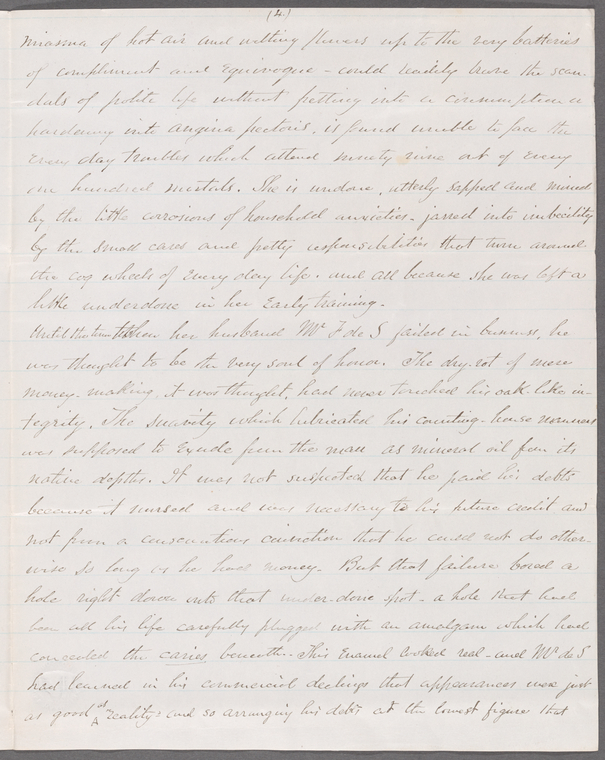 (4.)
miasma of hot air and wilting flowers up to the very batteries
of compliment and Equivoque - could readily brave the scan
dals of polite life without fretting into a consumption or
hardening into angina pectoris, is found unable to face the
Every day troubles which attend ninety nine out of Every
one hundred mortals. She is undone, utterly sapped and mined
by the little corrosions of household anxieties - jarred into imbecility
by the small cares and petty responsibilities that turn around
the cog wheels of Every day life. and all because she was left a
little underdone in her Early training.
Until this time when her husband Mr F de S failed in business, he
was thought to be the very soul of honor. The dry-rot of mere
money-making, it was thought, had never touched his oak-like in-
tegrity. The suavity which lubricated his counting-house manners
was supposed to Exude from the man as mineral oil from its
native depths. It was not suspected that he paid his debts
because it nursed and was necessary to his future credit and
not from a conscientious conviction that he could not do other-
wise so long as he had money. But that failure bored a
hole right down into that under-done spot - a hole that had
been all his life carefully plugged with an amalgam which had
concealed the caries beneath. This Enamel looked real - and Mr de S
had learned in his commercial dealings that appearances were just
as good as reality - and so arranging his debts at the lowest figure that